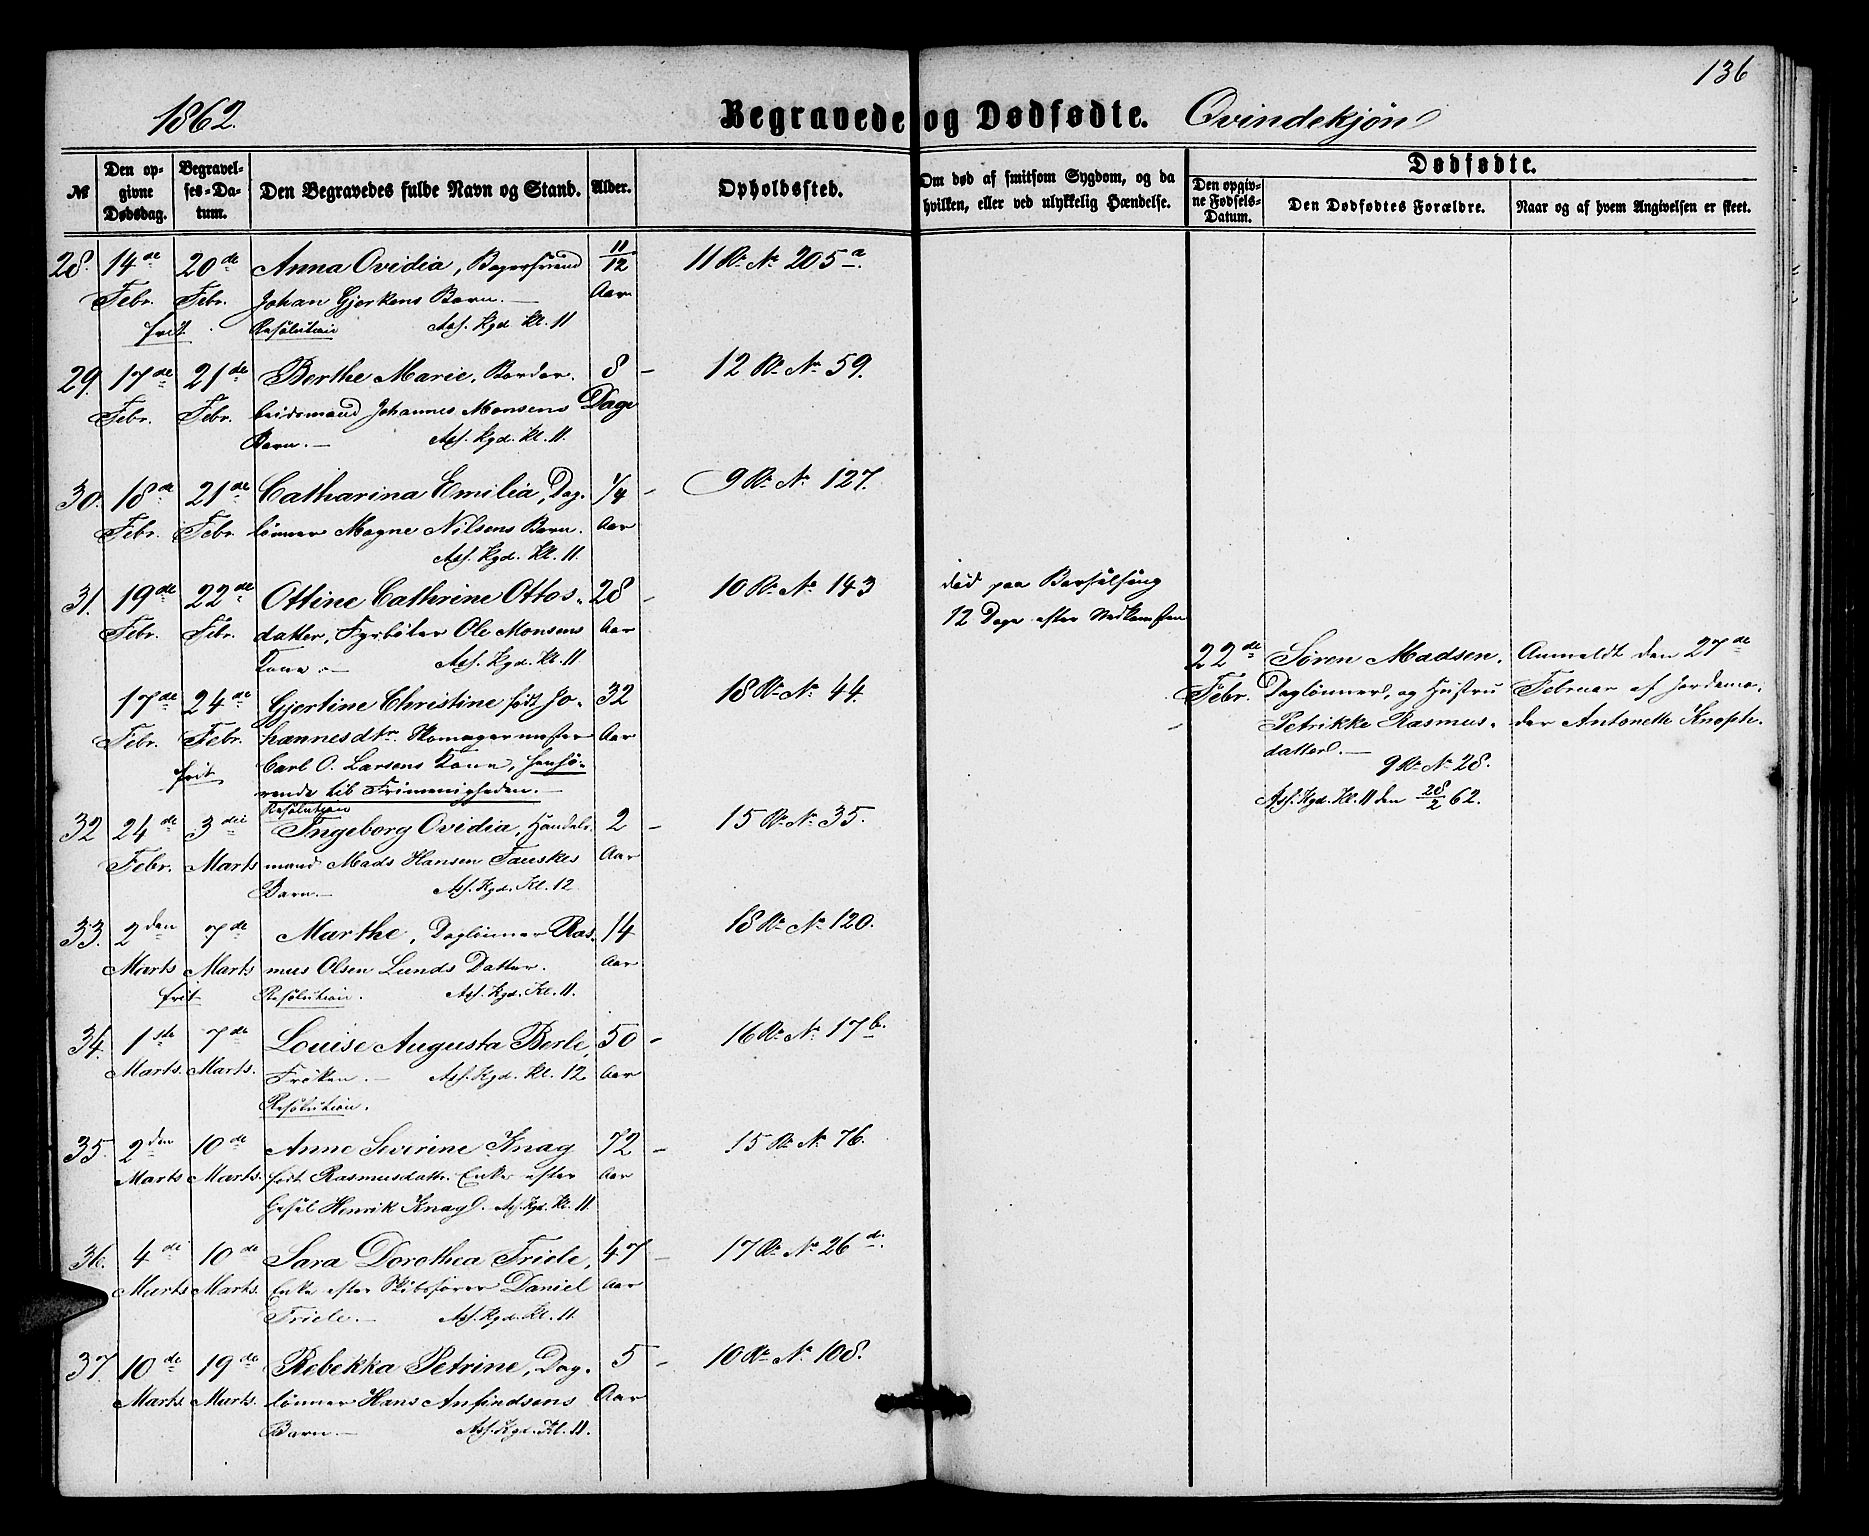 136
1862.
Begravede og Dødfødte. Qvindekjøn
№ Den opgivne Dødsdag. Begravelses-Datum. Den Begravedes fulde Navn og Stand. Alder. Opholdssted. Om død af smitsom Sygdom, og da hvilken, eller ved ulykkelig Hændelse. Dødfødte.
Den opgivne Fødsels-Datum. Den Dødfødtes Forældre. Naar og af hvem Angivelsen er skeet.
28. 14de 20de Anna Ovidia, Bagersvend 11/12 11 R. No 205a.
Febr. Febr. Johan Gjerkens Barn. — Aar
frit. Resolution Ass. Kgd. Kl. 11
29. 17de 21de Berthe Marie, Bordar- 8 — 12 R. No 59.
Febr. Febr. beidsmand Johannes Monsens Dage
Barn. — Ass. Kgd. Kl. 11.
30. 18de 21de Catharina Emilia, Dag- 1/4 — 9 R. No 127.
Febr. Febr. lønner Magne Nilsens Barn. Aar
Ass. Kgd. Kl. 11.
31. 19de 22de Ottine Cathrine Ottos- 28 — 10 R. No 143 død paa Barselseng
Febr. Febr. datter, Fyrbøter Ole Monsens Aar 12 Dage efter Nedkomsten
Kone. — Ass. Kgd. Kl. 11
22de Søren Madsen, Anmeldt den 27de
17de 24de Gjertine Christine født Jo- 32 18 R. No 44. Febr. Daglønner, og Hustru Februar af Jordemo-
Febr. Febr. hannesdtr. Skomagermester Aar Petrikke Rasmus- der Antonette Knoph.
frit Carl O. Larsens Kone, henhø- datter. —
rende til Frimenigheden. — 9 R. No 28.
Resolution Ass. Kgd. Kl. 11 den 28/2 62.
32 24de 3die Ingeborg Ovidia, Handels- 2 — 15 R. No 35.
Febr. Marts mand Mads Hansen Fauskes Aar
Barn. — Ass. Kgd. Kl. 12
33. 2den 7de Marthe, Daglønner Ras- 14 18 R. No 120.
Marts Marts mus Olsen Lunds Datter. Aar
frit Resolution. Ass. Kgd. Kl. 11.
34. 1ste 7de Louise Augusta Berle, 50 — 16 R. No 17b.
Marts. Marts. Frøken. — Ass. Kgd. Kl. 12 Aar
Resolution.
35. 2den 10de Anne Severine Knag 72 — 15 R. No 76.
Marts Marts. født Rasmusdattr. Enke efter Aar
Gesel Henrik Knag. Ass. Kgd. Kl. 11.
36. 4de 10de Sara Dorothea Friele, 47 — 17 R. No 26d.
Marts Marts. Enke efter Skibsfører Daniel Aar
Friele. — Ass. Kgd. Kl. 11.
37. 10de 19de Rebekka Petrine, Dag- 5 — 10 R. No 108.
Marts. Marts. lønner Hans Anfindsens Aar
Barn. — Ass. Kgd. Kl. 11.